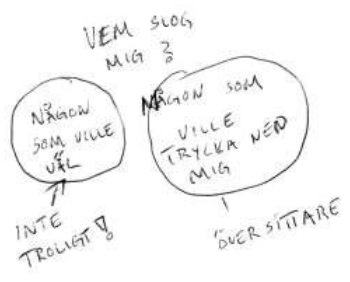 VEM SLOG
MIG ?
NÅGON
SOM VILLE
VÄL
INTE
TROLIGT !
NÅGON SOM
VILLE
TRYCKA NED
MIG
ÖVERSITTARE